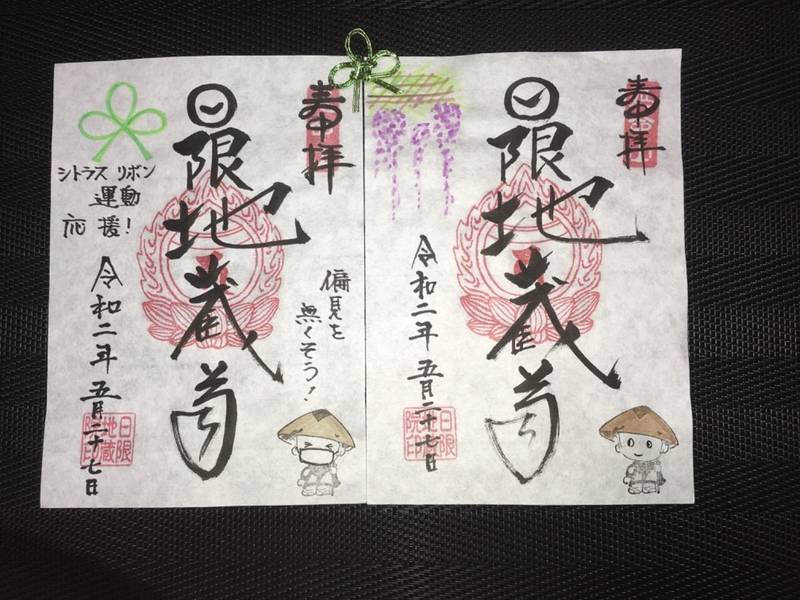 奉拝
日限地蔵尊
令和二年五月二十七日
日限
院印
奉拝
偏見を
無くそう!
日限地蔵尊
シトラス リボン
運動
応援!
令和二年 五月二十七日
日限
地蔵
院印